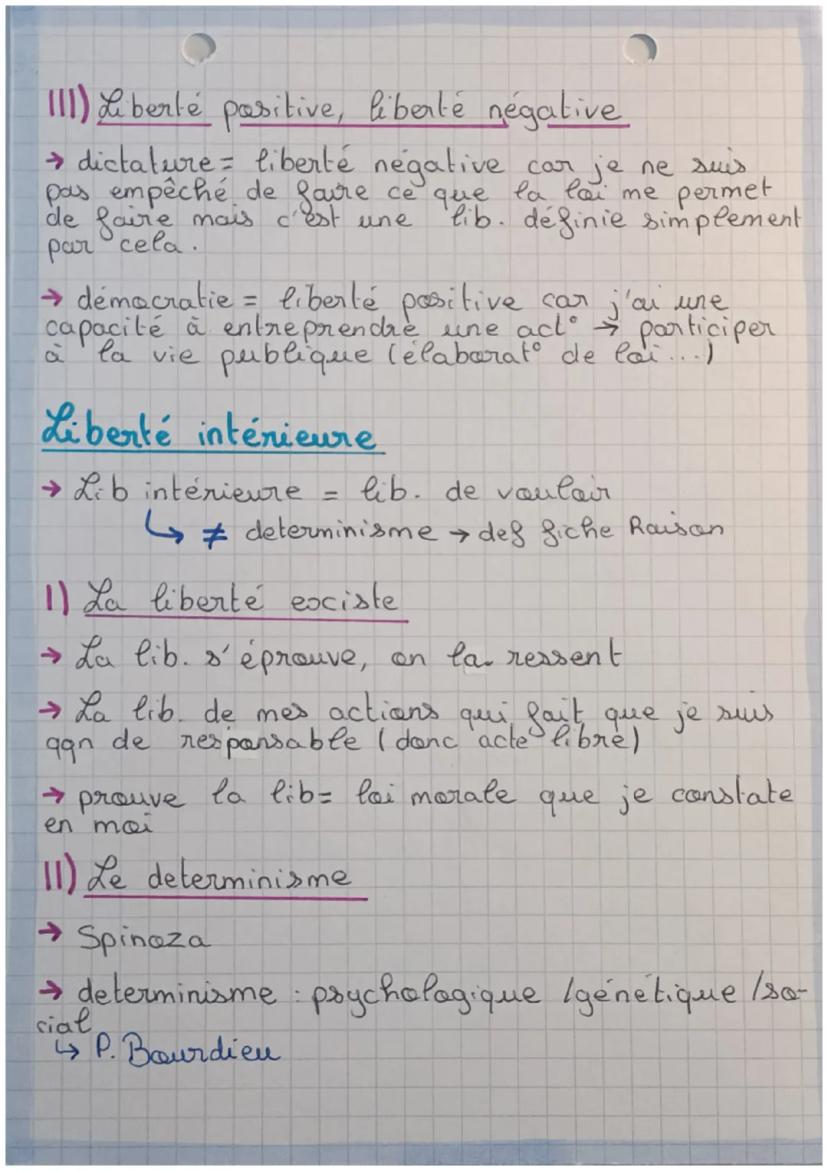 III) Liberté positive, liberté négative
→ dictature = liberté négative car je ne suis
pas empêché de faire ce que la loi me permet
de faire mais c'est une lib. définie simplement
par cela.
→ démocratie = liberté positive car j'ai une
capacité à entreprendre une act° → participer
à la vie publique (élaborat° de loi...)
Liberté intérieure
→ Lib intérieure = lib. de vouloir
↳ ≠ determinisme → def fiche Raison
I) La liberté existe
→ La lib. s'éprouve, on la ressent
→ La lib. de mes actions qui fait que je suis
qqn de responsable (donc acte libre)
→ prouve la lib = loi morale que je constate
en moi
II) Le determinisme
→ Spinoza
→ determinisme : psychologique /génétique /so-
cial
↳ P. Bourdieu